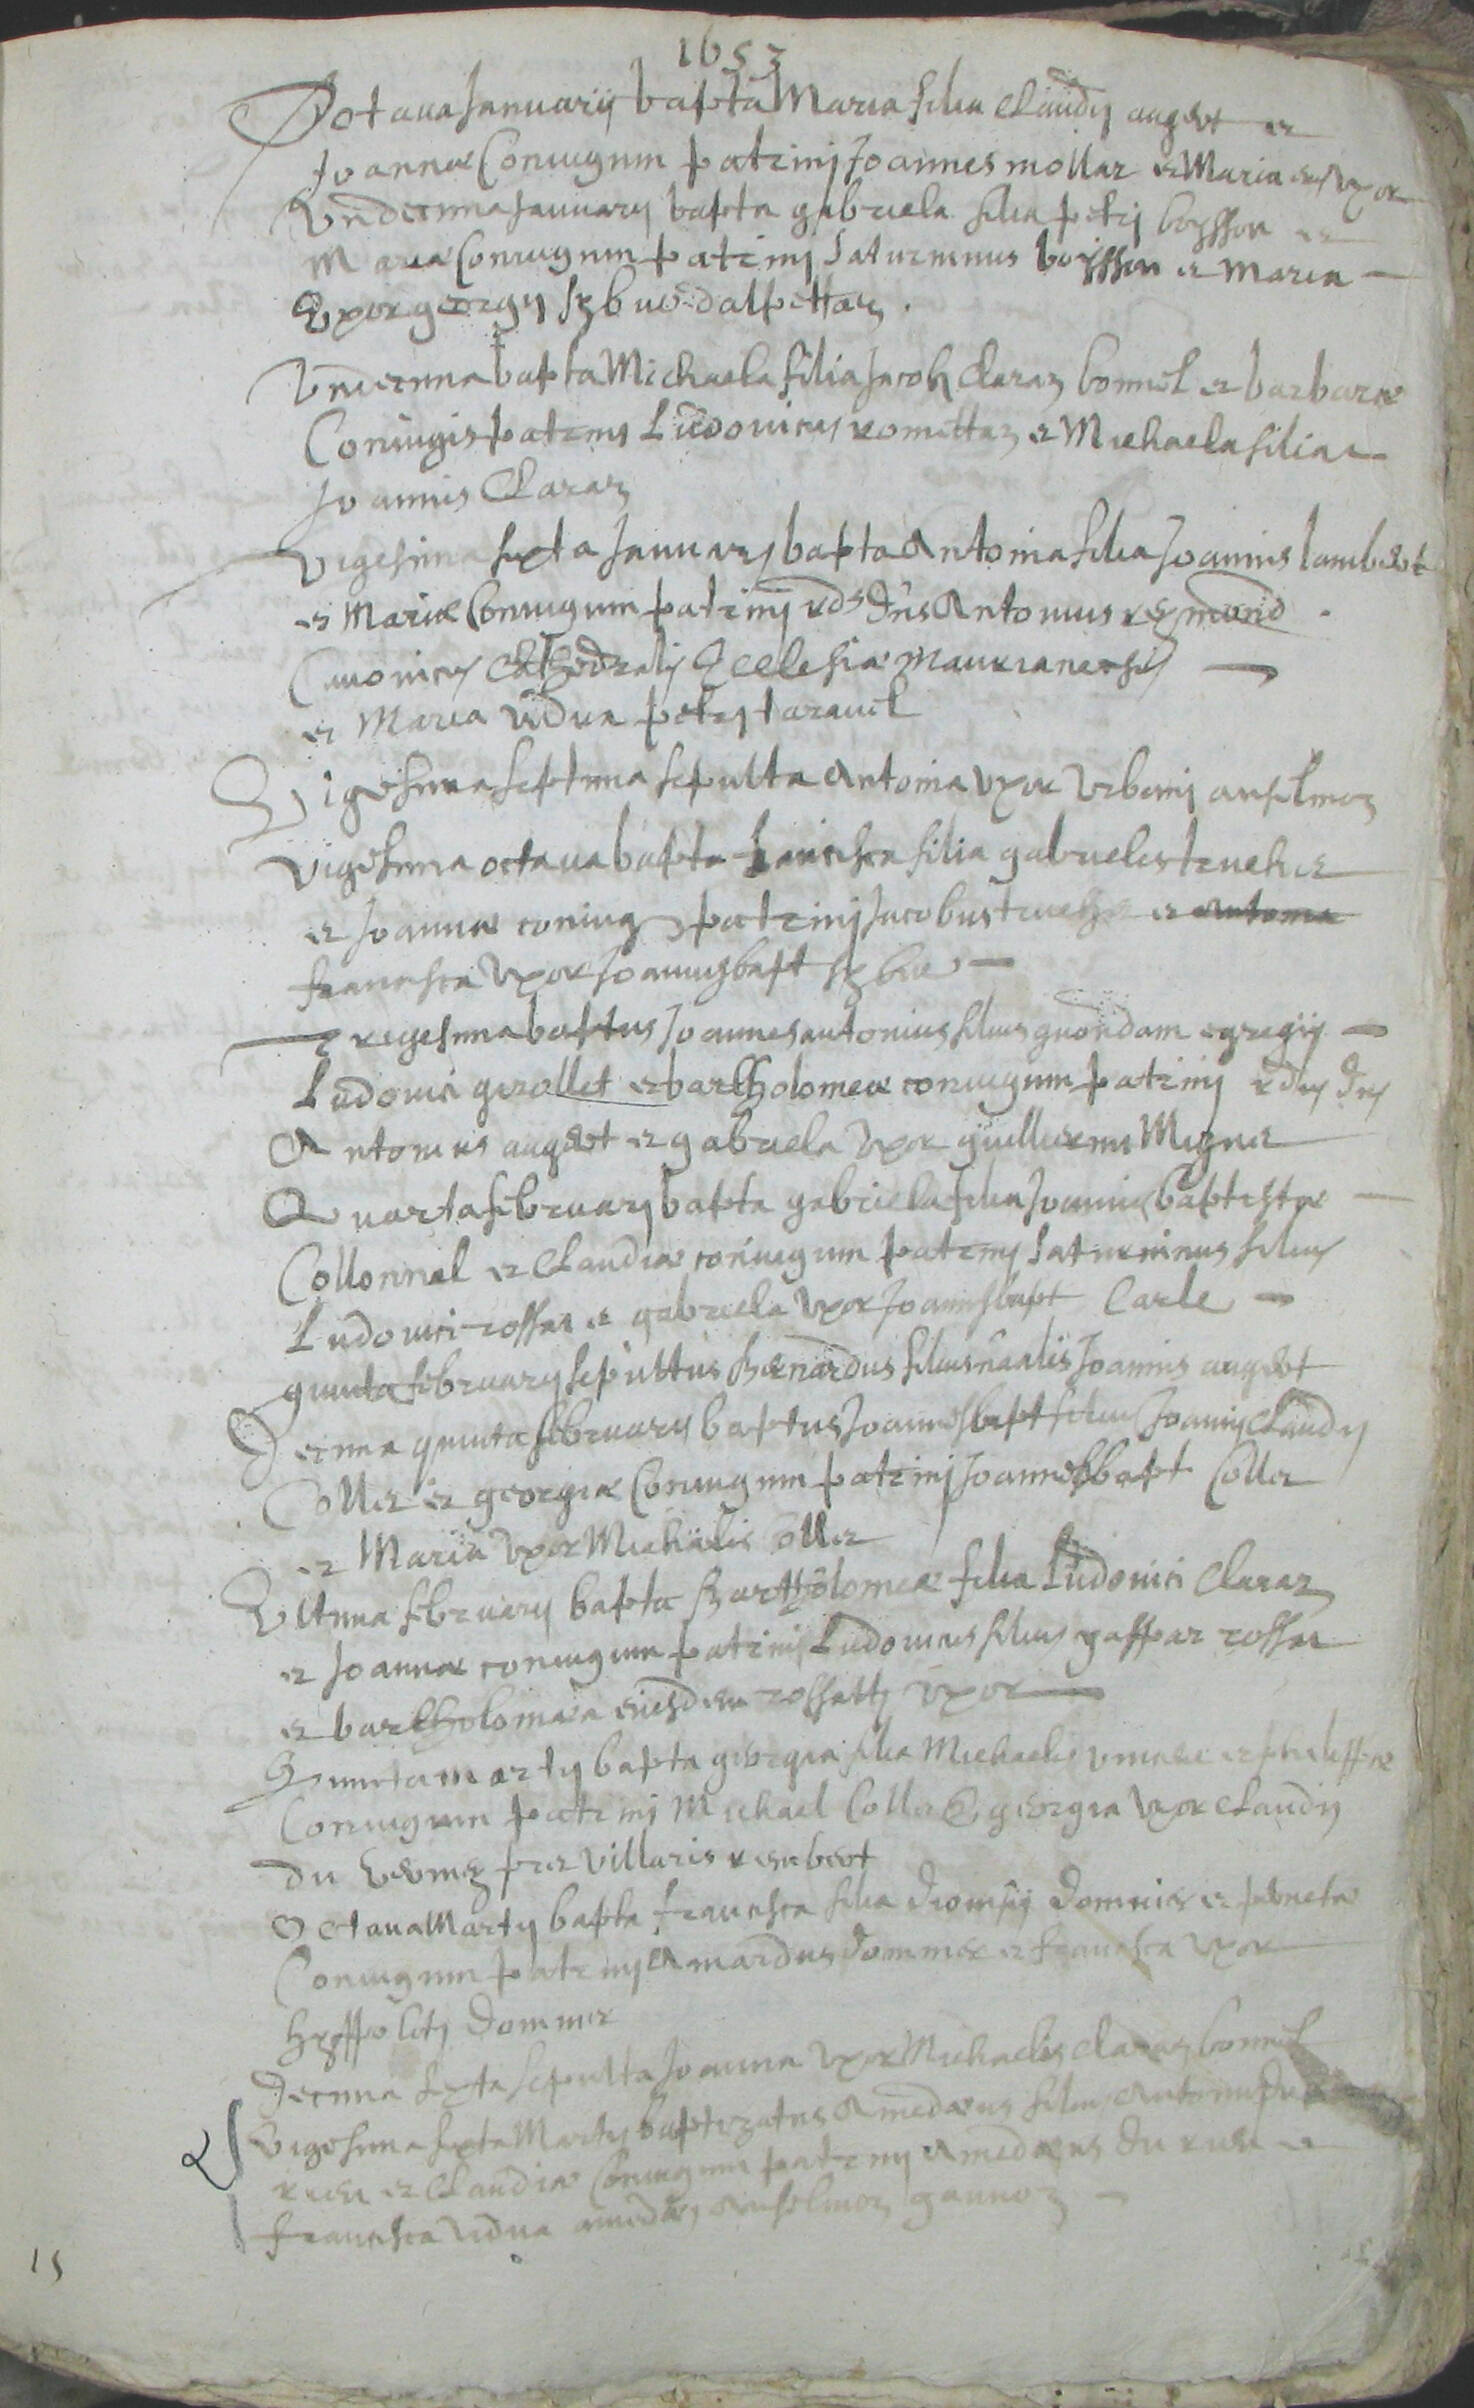 1653
Octaua Januarij bapta Maria filia Claudij augert et
Joannæ Coniugum patrinij Joannes mollar et Maria eius uxor
Vndecima Januarij bapta gabriela filia petri boisson et
Mariæ Coniugum patrinij Saturninus boisson et Maria
Vxor georgij
Vndecima bapta Michaela filia Jacobi Claraz bonnel et barbaræ
Coniugis patrinij Ludouicus romettaz et Michaela filia
Joannis Claraz
Vigesima sexta Januarij bapta Antonia filia Joannis lambert
et Mariæ Coniugum patrinij rds Dns Antonius reymond
Canonicus Cathedralis Ecclesiæ Maurianensis
et Maria vidua petri tarauel
Vigesima septima sepulta Antonia vxor Vrbani anselmoz
Vigesima octaua bapta francisca filia gabrielis truchet
et Joannæ coniug patrinij Jacobus truchet et Antonia
francisca vxor Joannisbapt
Trigesima baptus Joannes antonius filius quondam egregij
Ludouici girollet et bartholomeæ coniugum patrinij rdus Dns
Antonius augert et gabriela vxor guillermi Magner
Quarta februarij bapta gabriela filia Joannis baptistæ
Collonnel et Claudiæ coniugum patrinij Saturninus filius
Ludouici rossat et gabriela vxor Joannisbapt Carle
quinta februarij sepultus Bernardus filius nãalis Joannis augert
Decima quinta februarij baptus Joannesbapt filius Joannis Claudij
Collet et georgiæ Coniugum patrinij Joannesbapt Collet
et Maria vxor Michaelis Collet
Vltima februarij bapta Bartholomea filia Ludouici Claraz
et Joannæ coniugum patrinij Ludouicus filius gaspar rossat
et bartholomæa eiusdem rossatti vxor
Quinta martij bapta georgia filia Michaelis et philippæ
Coniugum patrinij Michael Collet & georgia vxor Claudij
du Villaris
Octaua Martij bapta francisca filia dionisij domnier et pernetæ
Coniugum patrinij Amardus domnier et francisca vxor
hyppoliti Domnier
Decima sexta sepulta Joanna vxor Michaelis claraz bonnel
Vigesima sexta Martij baptizatus Amedæus filius Antonij du
ruer et Claudiæ Coniugum patrinij Amedæus du ruer et
francisca vidua amedæi Anselmoz gannoz
15